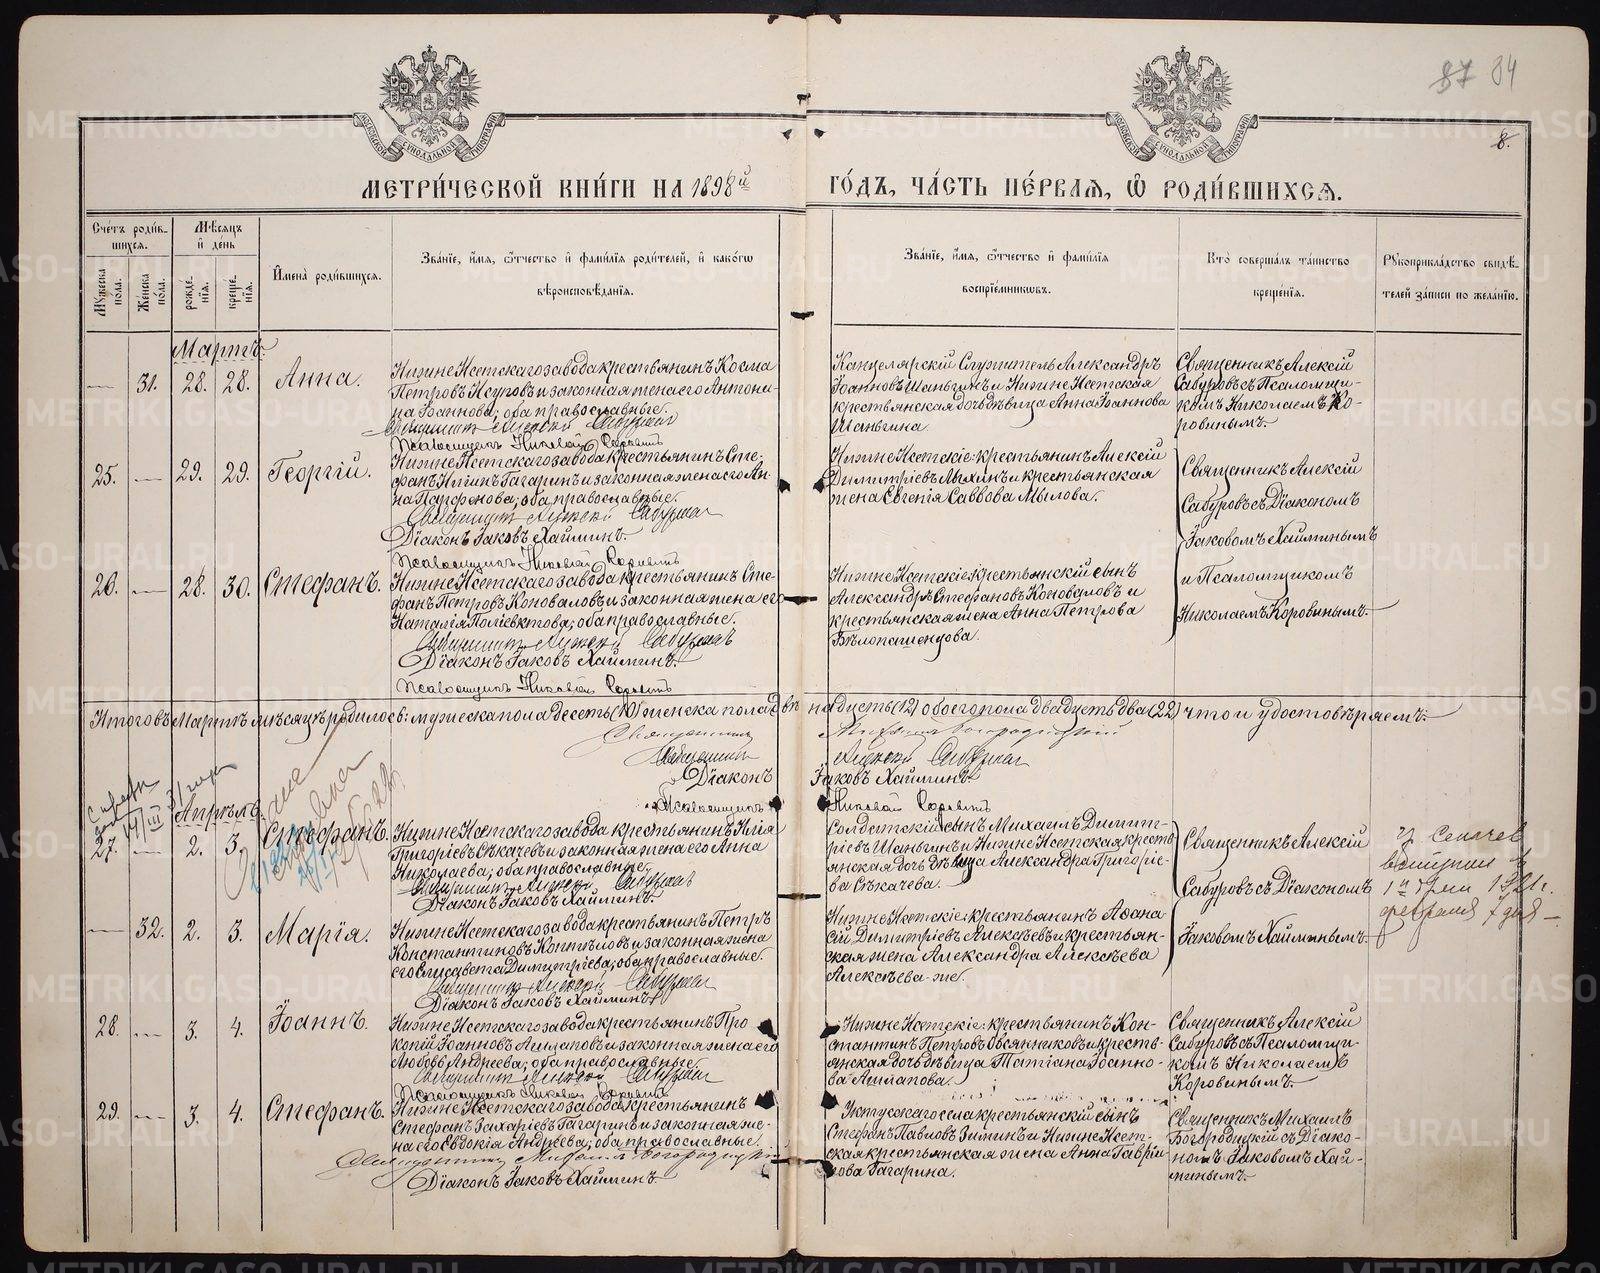 87 84
8.
МЕТРИ́ЧЕСКОЙ КНИ́ГИ НА 1898й
ГО́ДЪ, ЧА́СТЬ ПЕ́РВАЯ, Ѽ РОДИ́ВШИХСЯ.
Сче́тъ роди́в-
шихся.
Мѣ́сяцъ
и де́нь
Му́жеска
по́ла.
Же́нска
по́ла.
рожде́-
нія.
креще́-
нія.
Имена̀ роди́вшихся.
Зва́ніе, и́мя, ѻ́тчество и фами́лія роди́телей, и како́гѡ
вѣроисповѣ́данія.
Зва́ніе, и́мя, ѻ́тчество и фами́лія
воспріе́мникѡвъ.
Кто̀ соверша́лъ та́инство
креще́нія.
Рукоприкла́дство свидѣ́-
телей за́писи по жела́нію.
Мартъ.
31. 28. 28. Анна.
Нижне Исетскаго завода крестьянинъ Косма
Петровъ и законная жена его Антони-
на Іоаннова; оба православные.
Священникъ Алексій Сабуровъ
Псаломщикъ Николай Коровинъ
Канцелярскій Служитель Александръ
Іоанновъ Шаньгинъ и Нижне Исетская
крестьянская дочь дѣвица Анна Іоаннова
Шаньгина.
Священникъ Алексій
Сабуровъ съ Псаломщи-
комъ Николаемъ Ко-
ровинымъ.
25. 29. 29. Георгій.
Нижне Исетскаго завода крестьянинъ Сте-
фанъ Гагаринъ и законная жена его Ан-
на Парфенова; оба православные.
Священникъ Алексій Сабуровъ
Діаконъ Іаковъ Хайминъ.
Псаломщикъ Николай Коровинъ
Нижне Исетскіе: крестьянинъ Алексій
Димитріевъ и крестьянская
жена Евгенія Саввова Мылова.
Священникъ Алексій
Сабуровъ съ Діакономъ
Іаковомъ Хайминымъ
и Псаломщикомъ
Николаемъ Коровинымъ.
26. 28. 30. Стефанъ.
Нижне Исетскаго завода крестьянинъ Сте-
фанъ Петровъ Коноваловъ и законная жена его
Наталія Поліевктова; оба православные.
Священникъ Алексій Сабуровъ
Діаконъ Іаковъ Хайминъ.
Псаломщикъ Николай Коровинъ
Нижне Исетскіе: крестьянскій сынъ
Александръ Стефановъ Коноваловъ и
крестьянская жена Анна Петрова
Бѣлопашенцова.
Итого въ Мартѣ мѣсяцѣ родилось: мужеска пола десять (10) женска пола двѣнадцать (12) обоего пола двадцать два (22) что и удостовѣряемъ:
Священникъ Михаилъ Богородицкій
Священникъ Алексій Сабуровъ
Діаконъ Іаковъ Хайминъ
Псаломщикъ Николай Коровинъ
Апрѣль.
27. 2. 3. Стефанъ.
Нижне Исетскаго завода крестьянинъ Илія
Григоріевъ Сѣкачевъ и законная жена его Анна
Николаева; оба православные.
Священникъ Алексій Сабуровъ
Діаконъ Іаковъ Хайминъ.
Солдатскій сынъ Михаилъ Димит-
ріевъ Шаньгинъ и Нижне Исетская кресть-
янская дочь дѣвица Александра Григоріе-
ва Сѣкачева.
Священникъ Алексій
Сабуровъ съ Діакономъ
Іаковомъ Хайминымъ.
1921 г.
февраля 7 дня
32. 2. 3. Марія.
Нижне Исетскаго завода крестьянинъ Петръ
Константиновъ и законная жена
его Елисавета Димитріева; оба православные.
Священникъ Алексій Сабуровъ
Діаконъ Іаковъ Хайминъ
Нижне Исетскіе: крестьянинъ Аѳана-
сій Димитріевъ Алексѣевъ и крестьян-
ская жена Александра Алексѣева
Алексѣева-же.
28. 3. 4. Іоаннъ.
Нижне Исетскаго завода крестьянинъ Про-
копій Іоанновъ Ашлаповъ и законная жена его
Любовь Андреева; оба православные.
Священникъ Алексій Сабуровъ
Псаломщикъ Николай Коровинъ
Нижне Исетскіе: крестьянинъ Кон-
стантинъ Петровъ Овсянниковъ и кресть-
янская дочь дѣвица Татіана Іоанно-
ва Ашлапова.
Священникъ Алексій
Сабуровъ съ Псаломщи-
комъ Николаемъ
Коровинымъ.
29. 3. 4. Стефанъ.
Нижне Исетскаго завода крестьянинъ
Стефанъ Захаріевъ Гагаринъ и законная же-
на его Евдокія Андреева; оба православные.
Священникъ Михаилъ Богородицкій
Діаконъ Іаковъ Хайминъ
Уктусскаго села крестьянскій сынъ
Стефанъ Павловъ Зиминъ и Нижне Исет-
ская крестьянская жена Анна Гаврі-
лова Гагарина.
Священникъ Михаилъ
Богородицкій съ Діако-
номъ Іаковомъ Хай-
минымъ.
METRIKI.GASO-URAL.RU